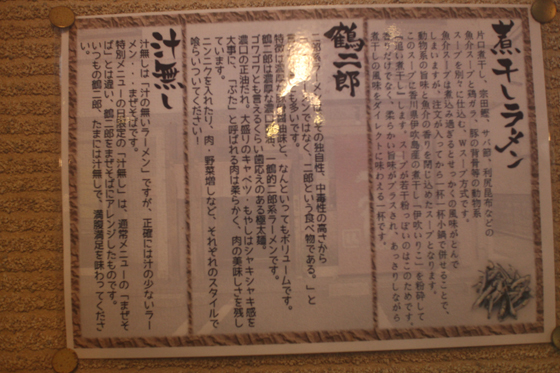 煮干しラーメン
片口煮干し、宗田鰹、サバ節、利尻昆布などの
魚介スープと鶏ガラ、豚の背骨等の動物系
スープを別々に仕込むWスープ方式です。
魚介スープは煮込み過ぎるとせっかくの風味がとんで
しまいますが、注文が入ってから一杯一杯小鍋で併せることで、
動物系の旨味と魚介の香りを閉じ込めたスープとなります。
このスープに香川県伊吹島産の煮干し「伊吹いりこ」を粉砕して
「追い煮干し」します。スープが若干粉っぽいのはこのためです。
香りだけでなく、柔らかい旨味がプラスされ、あっさりしながら
煮干しの風味をダイレクトに味わえる一杯です。
鶴二郎
二郎系ラーメンはその独自性、中毒性の高さから
ラーメンではなく、二郎という食べ物である。」と
も多いです。
特徴は 醤油味と、なんといってもボリュームです。
鶴二郎は濃厚な濃口醤油、一鶴的二郎系ラーメンです。
ゴワゴワとも言えるくらい歯応えのある極太麺。
濃口の正油だれ。大盛りのキャベツ・もやしはシャキシャキ感を
大事に、「ぶた」と呼ばれる肉は柔らかく、肉の美味しさを残し
ています。
ニンニクを入れたり、肉、野菜増しなど、それぞれのスタイルで
喰らいついてください!
汁無し
汁無しは「汁の無いラーメン」ですが、正確には汁の少ないラー
メン・・・まぜそばです。
特別メニューの日限定の「汁無し」は、通常メニューの「まぜそ
ば」とは違い、鶴二郎をまぜそばにアレンジしたものです。
いつもの鶴二郎、たまには汁無しで、満腹満足を味わってくださ
い。